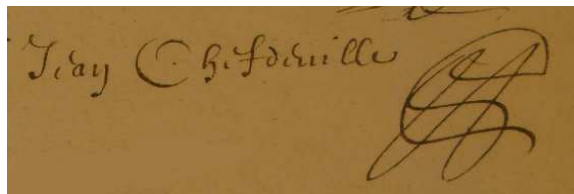 Jean Chefdeuille